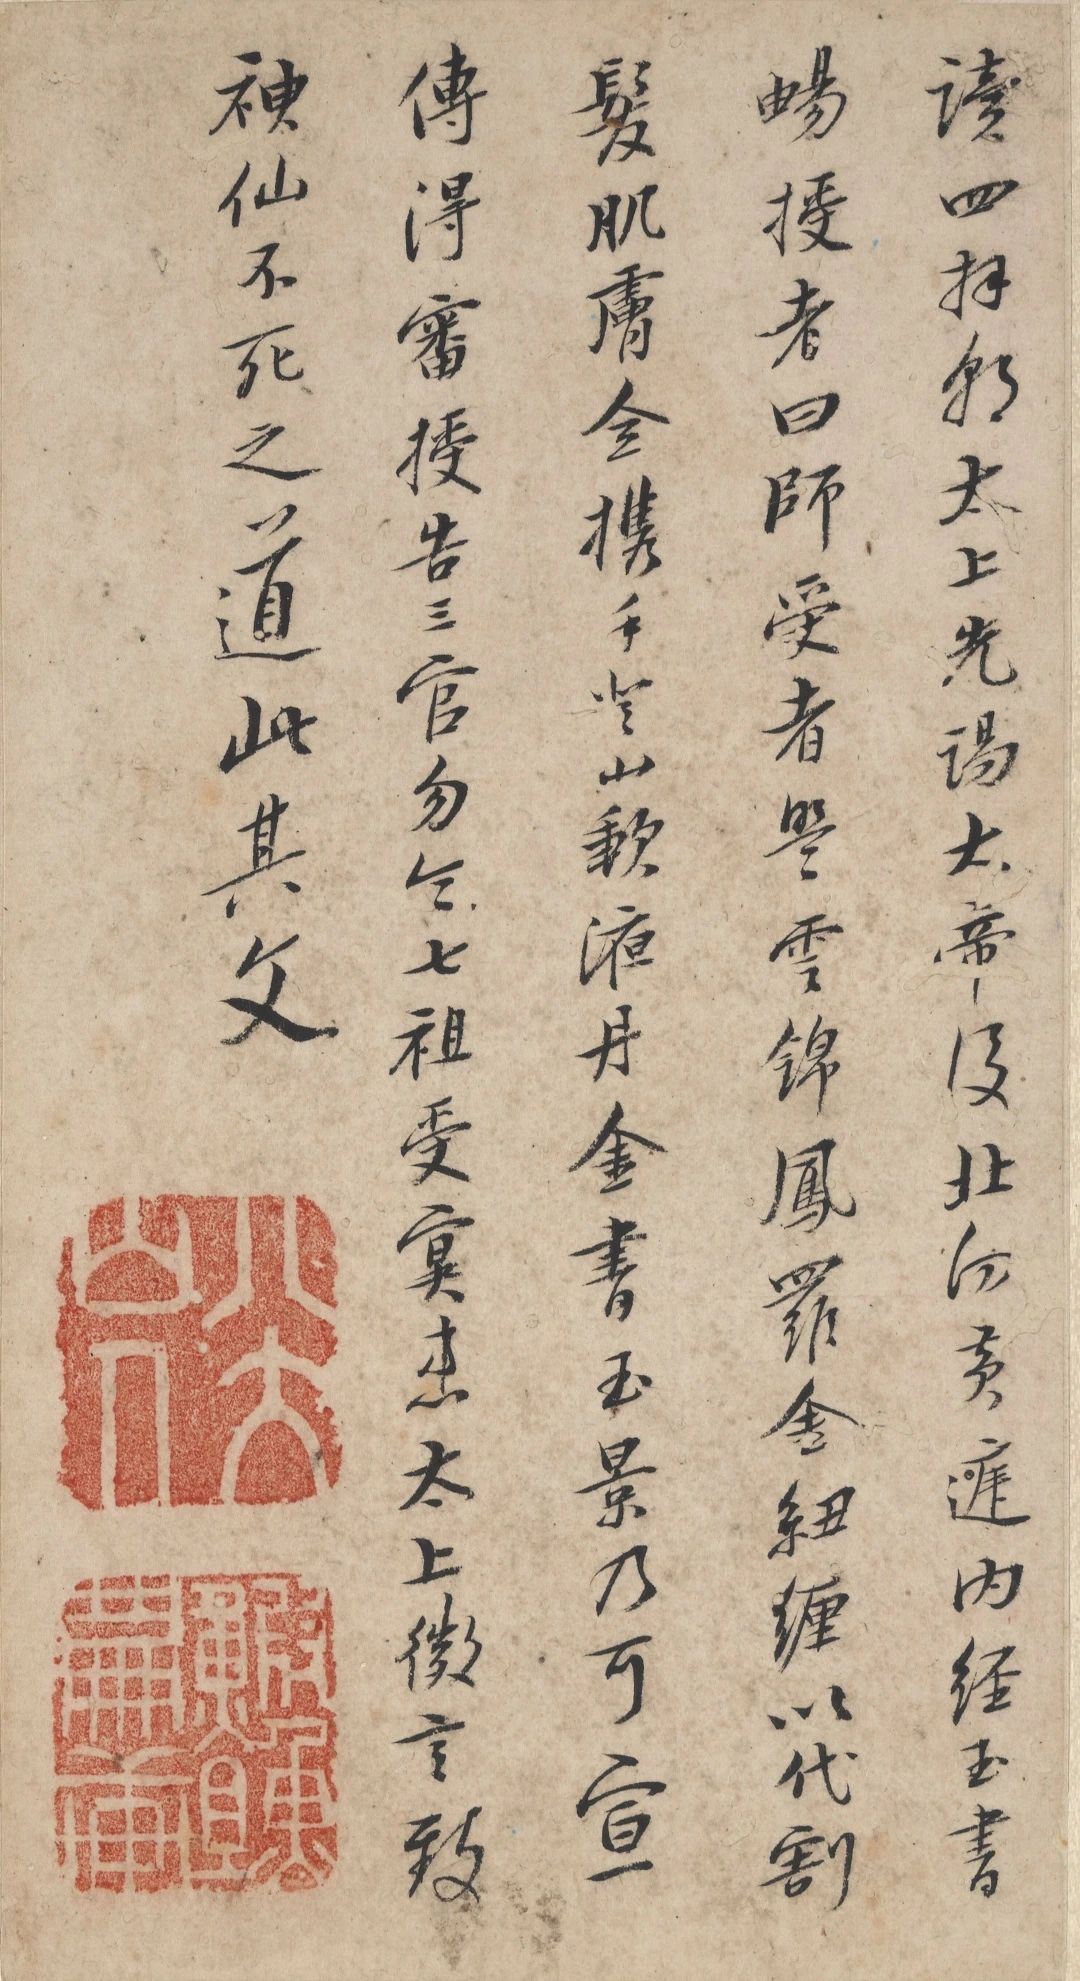 讀四拜朝太上先謁太帝後北向黃遲內經玉書
暢授者曰師受者盟雲錦鳳羅金紐纏以代割
髮肌膚全攜手登山歃液丹金書玉景乃可宣
傳得審授告三官勿令七祖受冥患太上微言致
神仙不死之道此其文